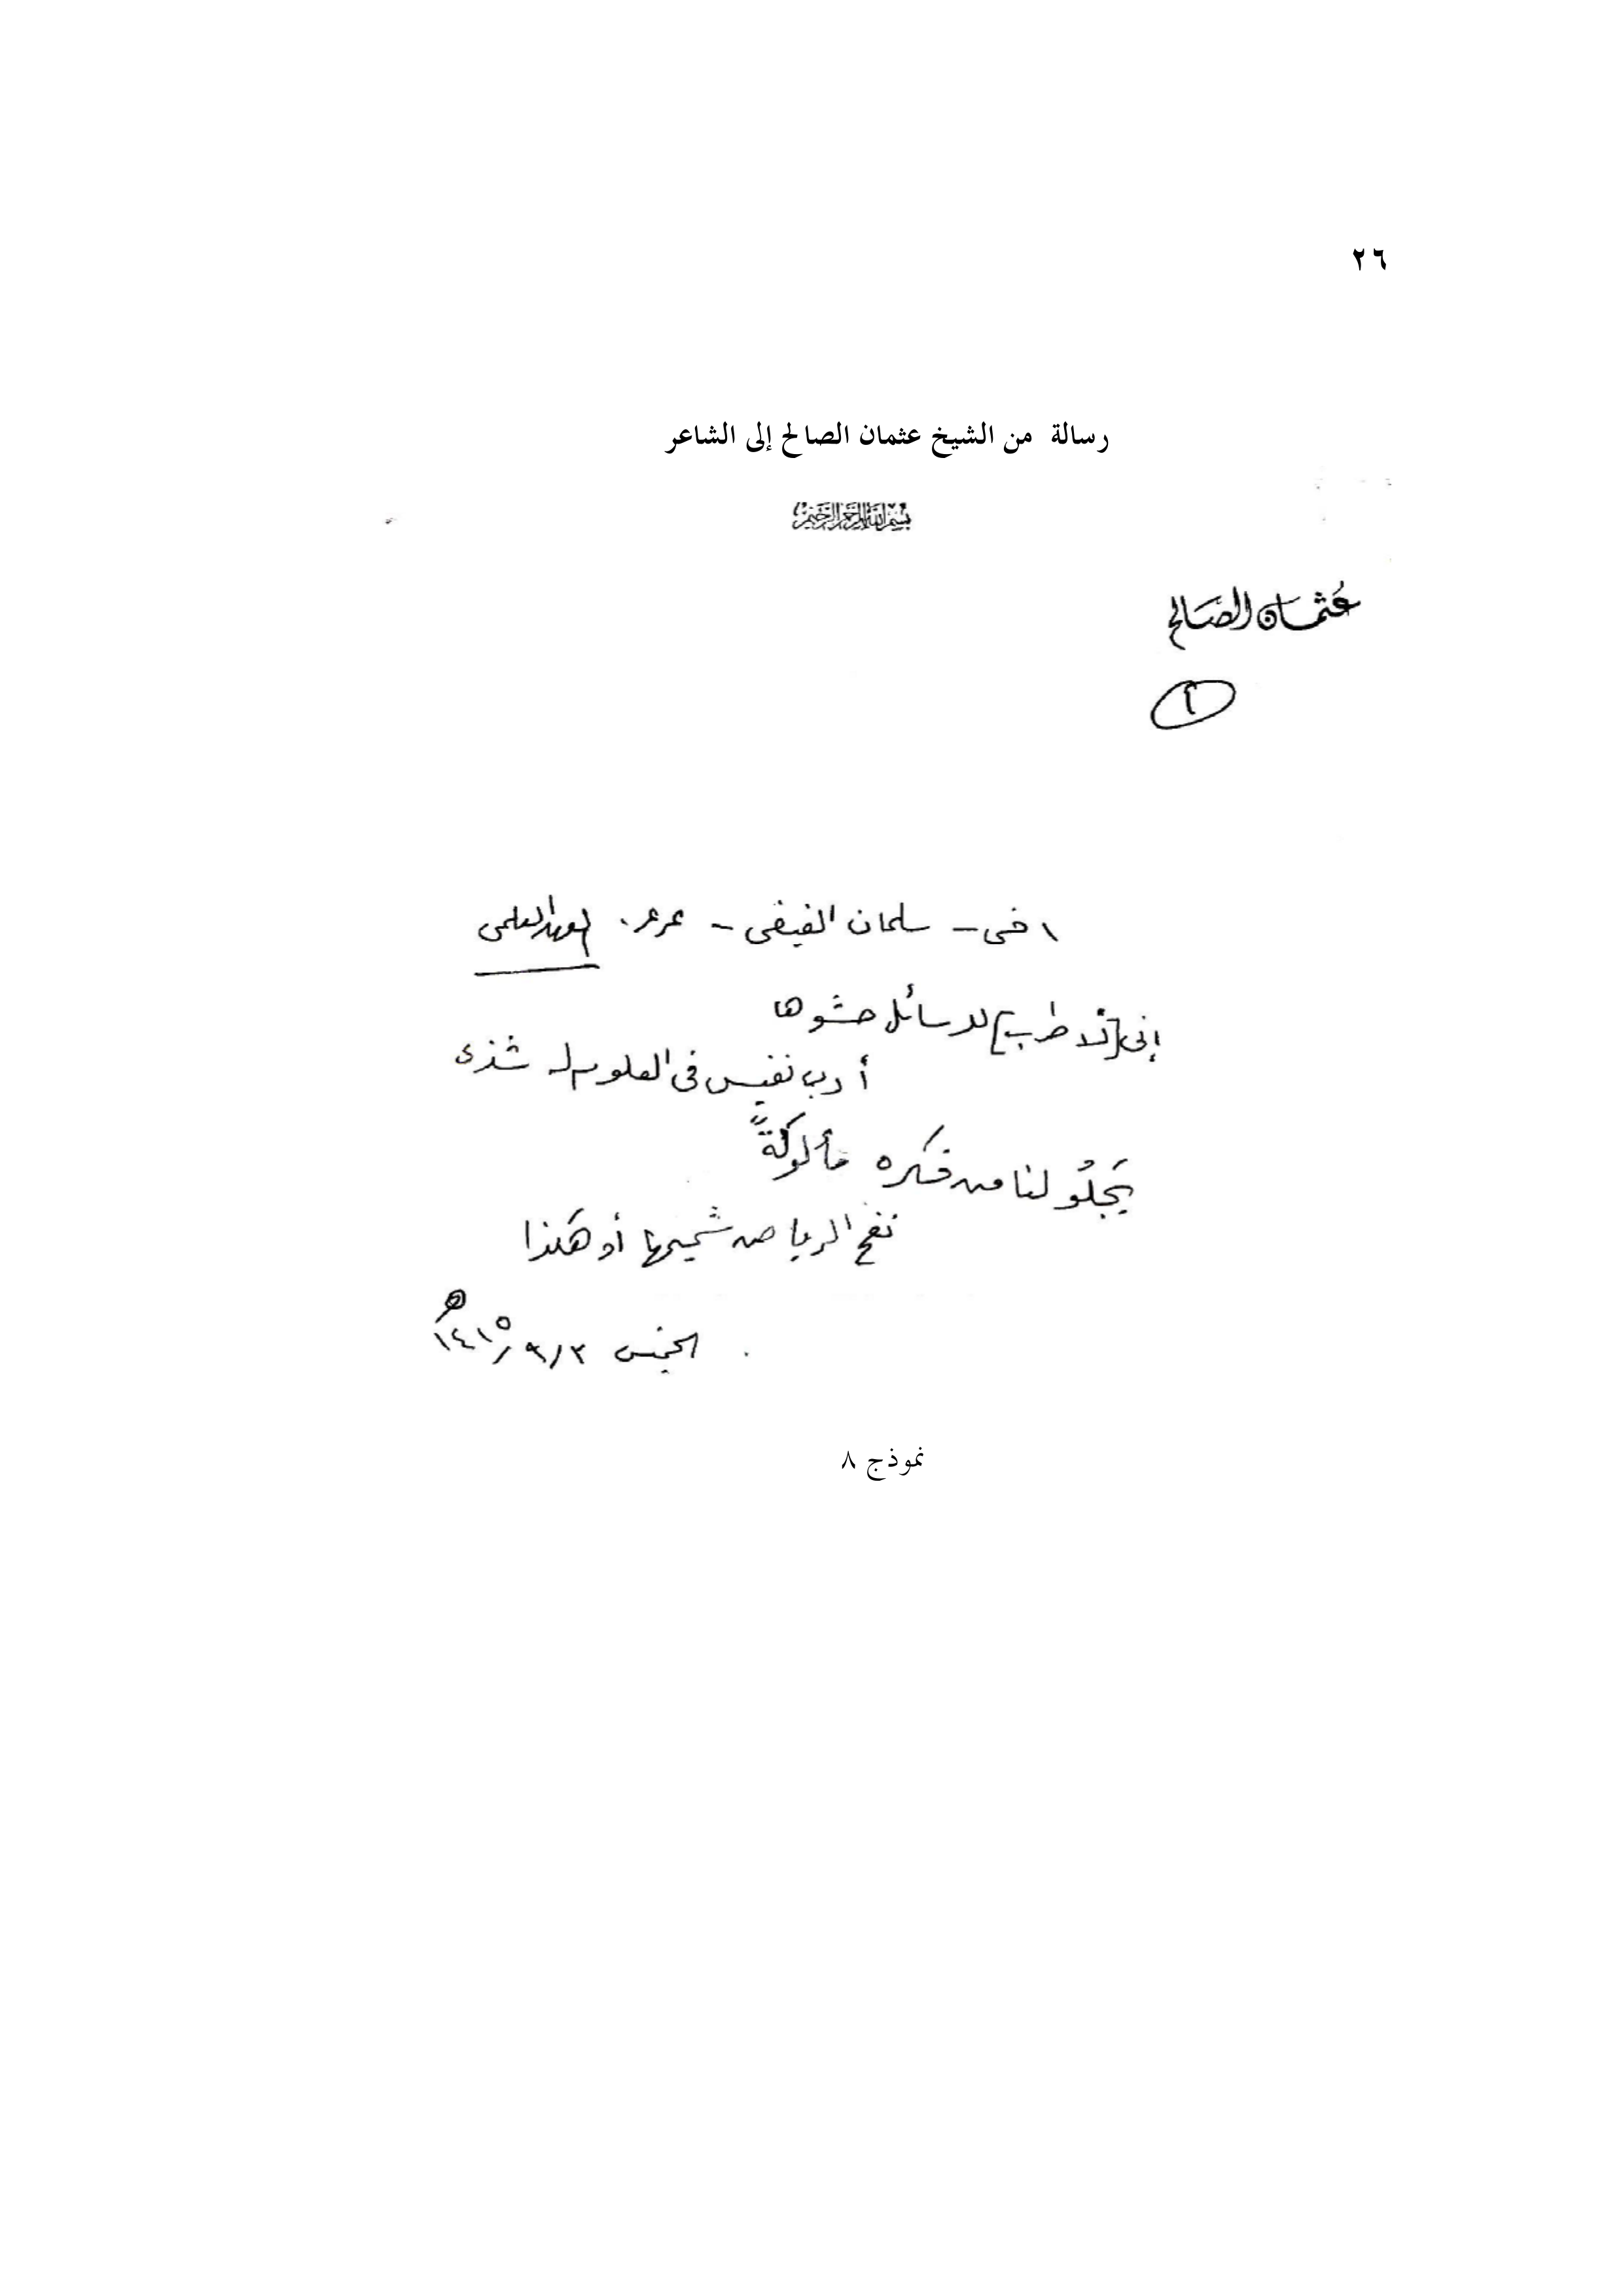 ٢٦
رسالة من الشيخ عثمان الصالح إلى الشاعر
بسم الله الرحمن الرحيم
عثمان الصالح
٢
اخي – سلمان الفيفي – عرعر. المعهد العلمي
إني [لأطرب] لرسائل حشوها
أدب نفيس في العلوم له شذى
يَجلُو لنا من فكره مألوكةً
نفح الرياض شميمها أو هكذا
الخميس ٣/٩/١٤١٥هـ
نموذج ٨